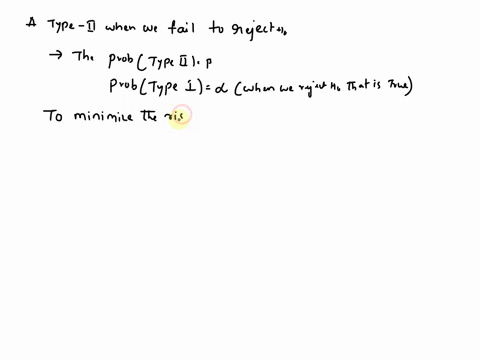 A Type-II when we fail to reject H₀
→ The prob(Type II) = β
Prob(Type I) = α (when we reject H₀ that is true)
To minimize the ris